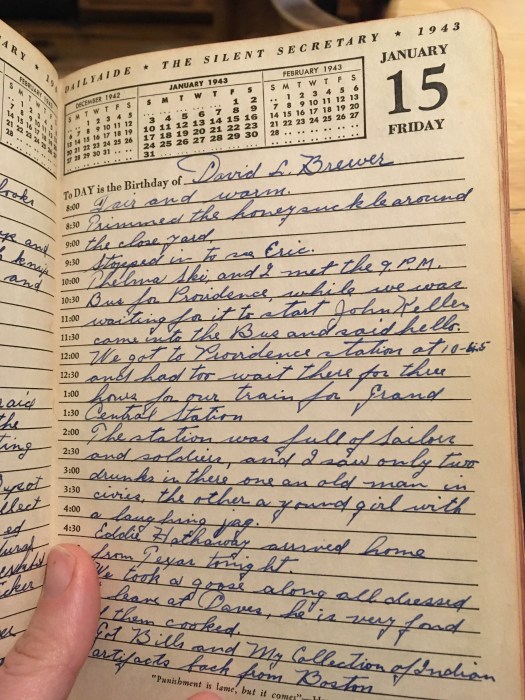 ARY ★ 19
FEBRUARY
DAILYAIDE ★ THE SILENT SECRETARY ★ 1943
DECEMBER 1942
S M T W T F S
1 2 3 4 5
6 7 8 9 10 11 12
13 14 15 16 17 18 19
20 21 22 23 24 25 26
27 28 29 30 31
JANUARY 1943
S M T W T F S
1 2
3 4 5 6 7 8 9
10 11 12 13 14 15 16
17 18 19 20 21 22 23
24 25 26 27 28 29 30
31
FEBRUARY 1943
S M T W T F S
1 2 3 4 5 6
7 8 9 10 11 12 13
14 15 16 17 18 19 20
21 22 23 24 25 26 27
28
JANUARY
15
FRIDAY
To DAY is the Birthday of David L. Brewer
8:00 Fair and warm.
8:30 Primmed the honeysuckle around
9:00 the close yard
9:30 Stopped in to see Eric.
10:00 Thelma Ski, and I met the 9 P.M.
10:30 Bus for Providence, while we was
11:00 waiting for it to start John Keller
11:30 came into the Bus and said hello.
12:00 We got to Providence station at 10-45
12:30 and had too wait there for three
1:00 hours for our train for Grand
1:30 Central Station
2:00 The station was full of sailors
2:30 and soldiers, and I saw only two
3:00 drunks in there one an old man in
3:30 civies, the other a young girl with
4:00 a laughing jag.
4:30 Eddie Hathaway arrived home
from Texas tonight
We took a goose along all dressed
leave at Daves, he is very fond
them cooked.
Got Bills and My Collection of Indian
artifacts back from Boston
"Punishment is lame, but it comes"
and
and
raid
the
ting
ed